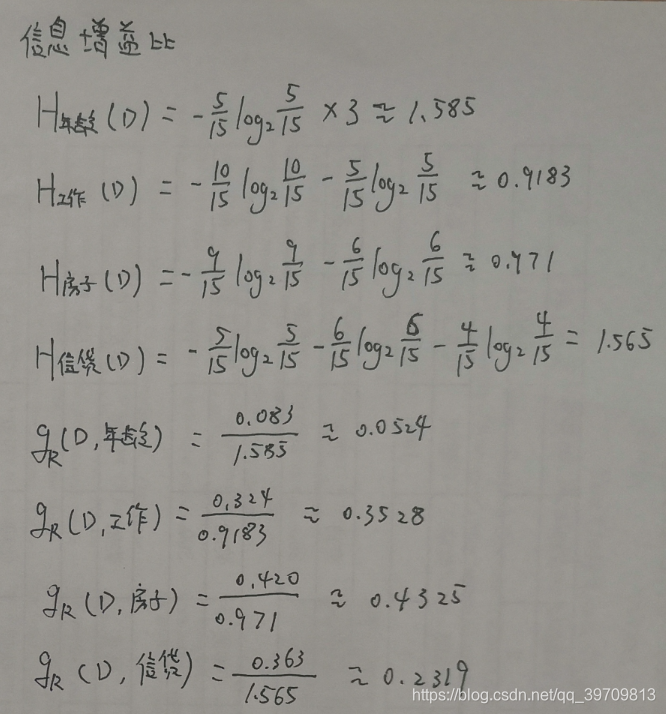 信息增益比
H年龄(D) = -5/15 log₂ 5/15 × 3 ≈ 1.585
H工作(D) = -10/15 log₂ 10/15 - 5/15 log₂ 5/15 ≈ 0.9183
H房子(D) = -9/15 log₂ 9/15 - 6/15 log₂ 6/15 ≈ 0.971
H信贷(D) = -5/15 log₂ 5/15 - 6/15 log₂ 6/15 - 4/15 log₂ 4/15 = 1.565
g_R(D,年龄) = 0.083/1.585 ≈ 0.0524
g_R(D,工作) = 0.324/0.9183 ≈ 0.3528
g_R(D,房子) = 0.420/0.971 ≈ 0.4325
g_R(D,信贷) = 0.363/1.565 ≈ 0.2319
https://blog.csdn.net/qq_39709813